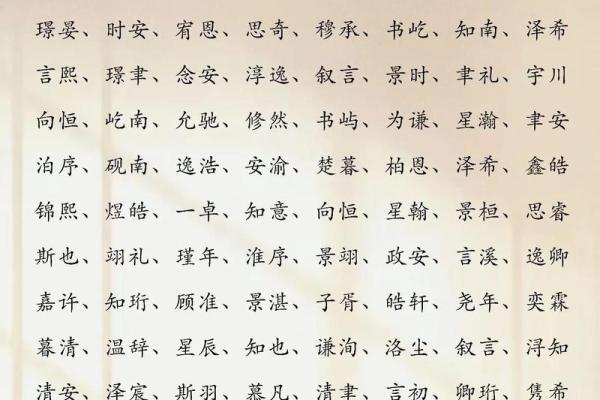 璟晏、时安、宥恩、思奇、穆承、书屹、知南、泽希
言熙、璟聿、念安、淳逸、叙言、景时、聿礼、宇川
向恒、屹南、允驰、修然、书屿、为谦、星瀚、聿安
泊序、砚南、逸浩、安渝、楚暮、柏恩、泽希、鑫皓
锦熙、煜皓、一卓、知意、向恒、星翰、景桓、思睿
斯也、翊礼、瑾年、淮序、景翊、政安、言溪、逸卿
嘉许、知珩、顾准、景湛、子胥、皓轩、尧年、奕霖
暮清、温辞、星辰、知也、谦洵、洛尘、叙言、浔知
清安、泽宸、斯羽、慕凡、清聿、言初、卿珩、隽希